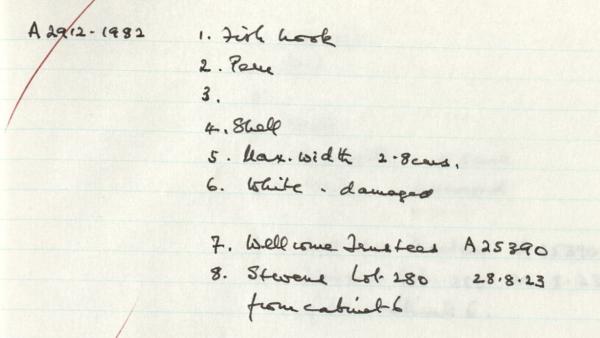 A 2912-1982 1. Fish hook
2. Peru
3.
4. Shell
5. Max. width 2.8 cms.
6. White. damaged
7. Wellcome Trustees A25390
8. Stevens Lot. 280 28.8.23
from cabinet 6